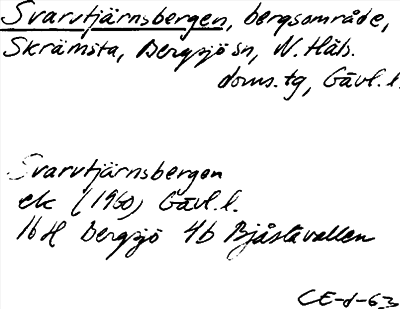 Svarvtjärnsbergen, bergsområde,
Skrämsta, Bergsjö sn, N. Häls.
doms.tg, Gävl. l.
Svarvtjärnsbergen
ek (1960) Gävl. l.
16 H Bergsjö 4b Bjåstavallen
CE-d-63